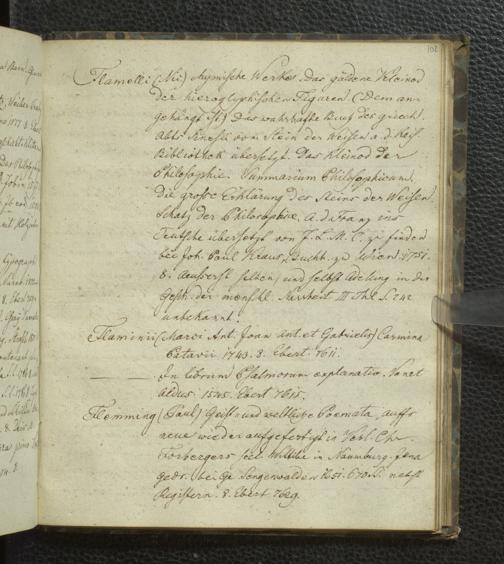 102
Flamelli (Nic) chymische Werke. Das güldene Kleinod
der hieroglyphischen Figuren (Dem an-
gehängt ist) Das wahrhafte Buch des griech.
Abts Sinesii vom Stein der Weisen a. d. Kais.
Bibliothek übersetzt. Das Kleinod der
Philosophie. Summarium Philosophicum.
die große Erklärung des Steins der Weisen.
Schatz der Philosophie. A. d. Franz ins
Teutsche übersetzt von J. L. M. C. zu finden
bei Joh. Paul Kraus, Buchh. zu Wien 1751.
8. äußerst selten, und selbst Adelung in der
Gesch. der menschl. Narrheit III Thl. S. 242
unbekannt!
Flaminii (Marci Ant. Joan ant. et Gabrielis) Carmina
Patavii 1743. 8. Ebert 7611.
In librum Psalmorum explanatio. Venet
Aldus. 1545. Ebert 7615.
Flemming (Paul) Geist- und weltliche Poemata, aufs
neue wieder aufgefertigt in Verl. Chr.
Forbergers seel. Wittbe in Naumburg. Jena
gedr. bei Ge Sengenwalden 1651. 670 S. nebst
Registern. 8. Ebert 7629.